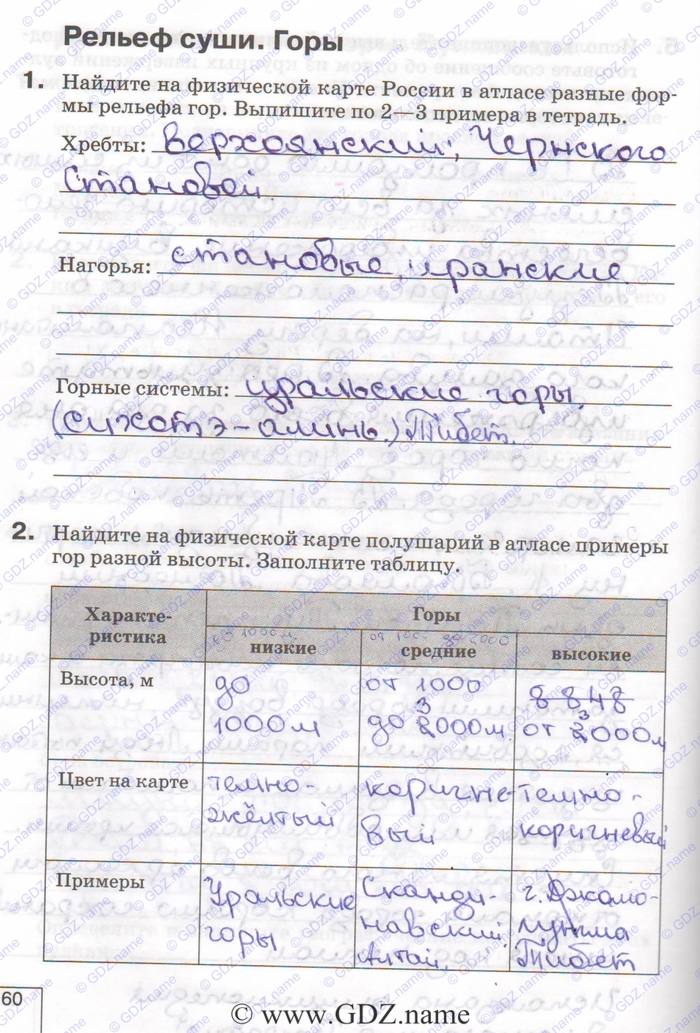 Рельеф суши. Горы
1. Найдите на физической карте России в атласе разные фор-
мы рельефа гор. Выпишите по 2—3 примера в тетрадь.
Хребты: Верхоянский, Чернского
Становой
Нагорья: становые, иранские
Горные системы: уральские горы,
(сихотэ-алинь.) Тибет.
2. Найдите на физической карте полушарий в атласе примеры
гор разной высоты. Заполните таблицу.
Характе-
ристика
Горы
низкие
средние
высокие
Высота, м
до
1000м
от 1000
3
до 2000м
8848
3
от 2000м
Цвет на карте
темно-
жёлтый
коричне-
вый
темно-
коричневый
Примеры
Уральские
горы
Сканди-
навский
Алтай,
г. Джомо-
лунгма
Тибет
60
© www.GDZ.name